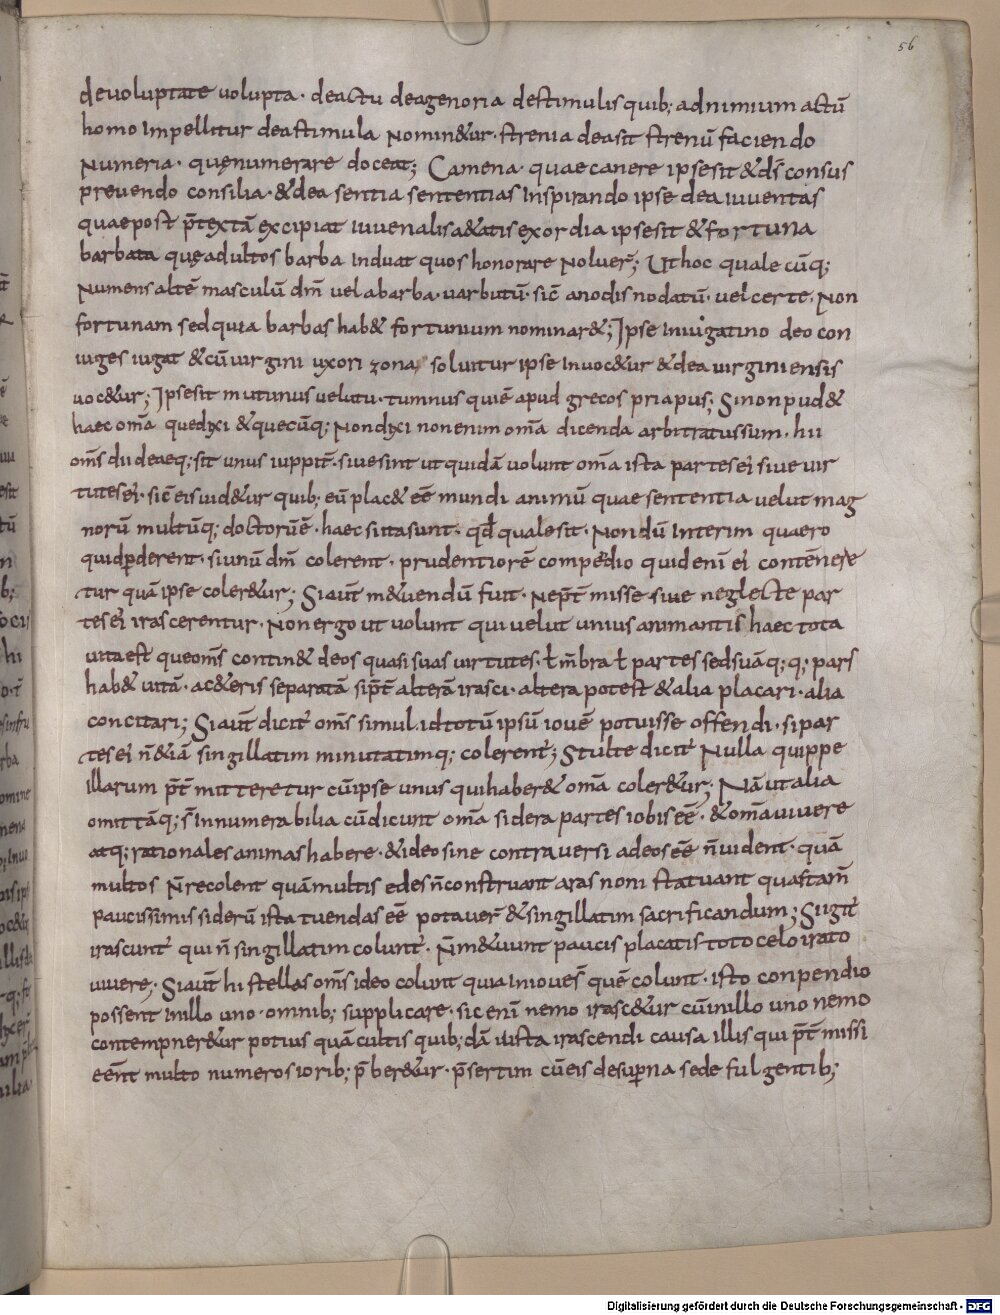 56
de voluptate volupta · de actu dea genoria de stimulis quib; ad nimium actū
homo impellitur dea stimula nomin&ur · strenia dea sit strenū faciendo
Numeria · quę numerare doceat; Camena · quae canere ipse sit & ds̄ consus
prevendo consilia · & dea sentia sententias inspirando ipse dea iuventas
quae post p̄textā excipiat iuvenalis a&atis exordia ipse sit & fortuna
barbata quę adultos barba induat quos honorare noluer̄; Ut hoc quale cūq;
Numen saltē masculū dm̄ vel a barba · varbutū · sic̄ a nodis nodatū · vel certe · Non
fortunam sed quia barbas hab& fortunium nominar&; Ipse in iugatino deo con
iuges iugat & cū virgini uxori zona soluitur ipse invoc&ur & dea virginiensis
voc&ur; Ipse sit mutunus velutu · tumnus qui ē apud grecos priapus; Si non pud&
haec om̄a que dixi & quecūq; Non dixi non enim om̄a dicenda arbitratus sum · hii
om̄s dii deaeq; sit unus iuppit̄ · sive sint ut quidā volunt om̄a ista partes ei sive vir
tutes ei · sic̄ eis vid&ur quib; eū plac& ēē mundi animū quae sententia velut mag
norū multūq; doctorū ē · haec si ita sunt · qd̄ quale sit · Non dū interim quaero
quid p̱derent · si unū dm̄ colerent · prudentiorē compēdio quid enī ei contēnere
tur quā ipse coler&ur; Si aut̄ m&uendū fuit · Ne p̄t̄misse sive neglecte par
tes ei irascerentur · Non ergo ut volunt qui velut unius animantis haec tota
vita est que om̄s contin& deos quasi suas virtutes · ł m̄bra ł partes sed suā q;q; pars
hab& vitā · ac&eris separatā si p̄t̄ alterā irasci · altera potest & alia placari · alia
concitari; Si aut̄ dicit̄ om̄s simul · id totū ipsū iovē potuisse offendi · si par
tes ei n̄ &iā singillatim minutatimq; colerent̄; Stulte dicit̄ Nulla quippe
illarum p̄t̄mitteretur cū ipse unus qui haber& om̄a coler&ur; Nā ut alia
omittāq; s̄ innumerabilia cū dicunt om̄a sidera partes iobis ēē · & om̄a vivere
atq; rationales animas habere · & ideo sine contraversi a deos ēē n̄ vident · quā
multos n̄ recolent quā multis edes n̄ construant aras non statuant quas tam̄
paucissimis siderū ista tuendas ēē potaver̄ & singillatim sacrificandum; Si igit̄
irascunt̄ qui n̄ singillatim colunt̄ · N̄ m&uunt paucis placatis toto celo irato
vivere; Si aut̄ hi stellas om̄s ideo colunt quia in iovē s̄ quē colunt · isto conpendio
possent in illo uno · omnib; supplicare · sic enī nemo irasc&ur cū in illo uno nemo
contempner&ur potius quā cultis quib;dā iusta irascendi causa illis qui p̄t̄missi
eēnt multo numerosiorib; p̄ber&ur · p̄sertim cū eis de sup̱na sede fulgentib;
Digitalisierung gefördert durch die Deutsche Forschungsgemeinschaft - DFG